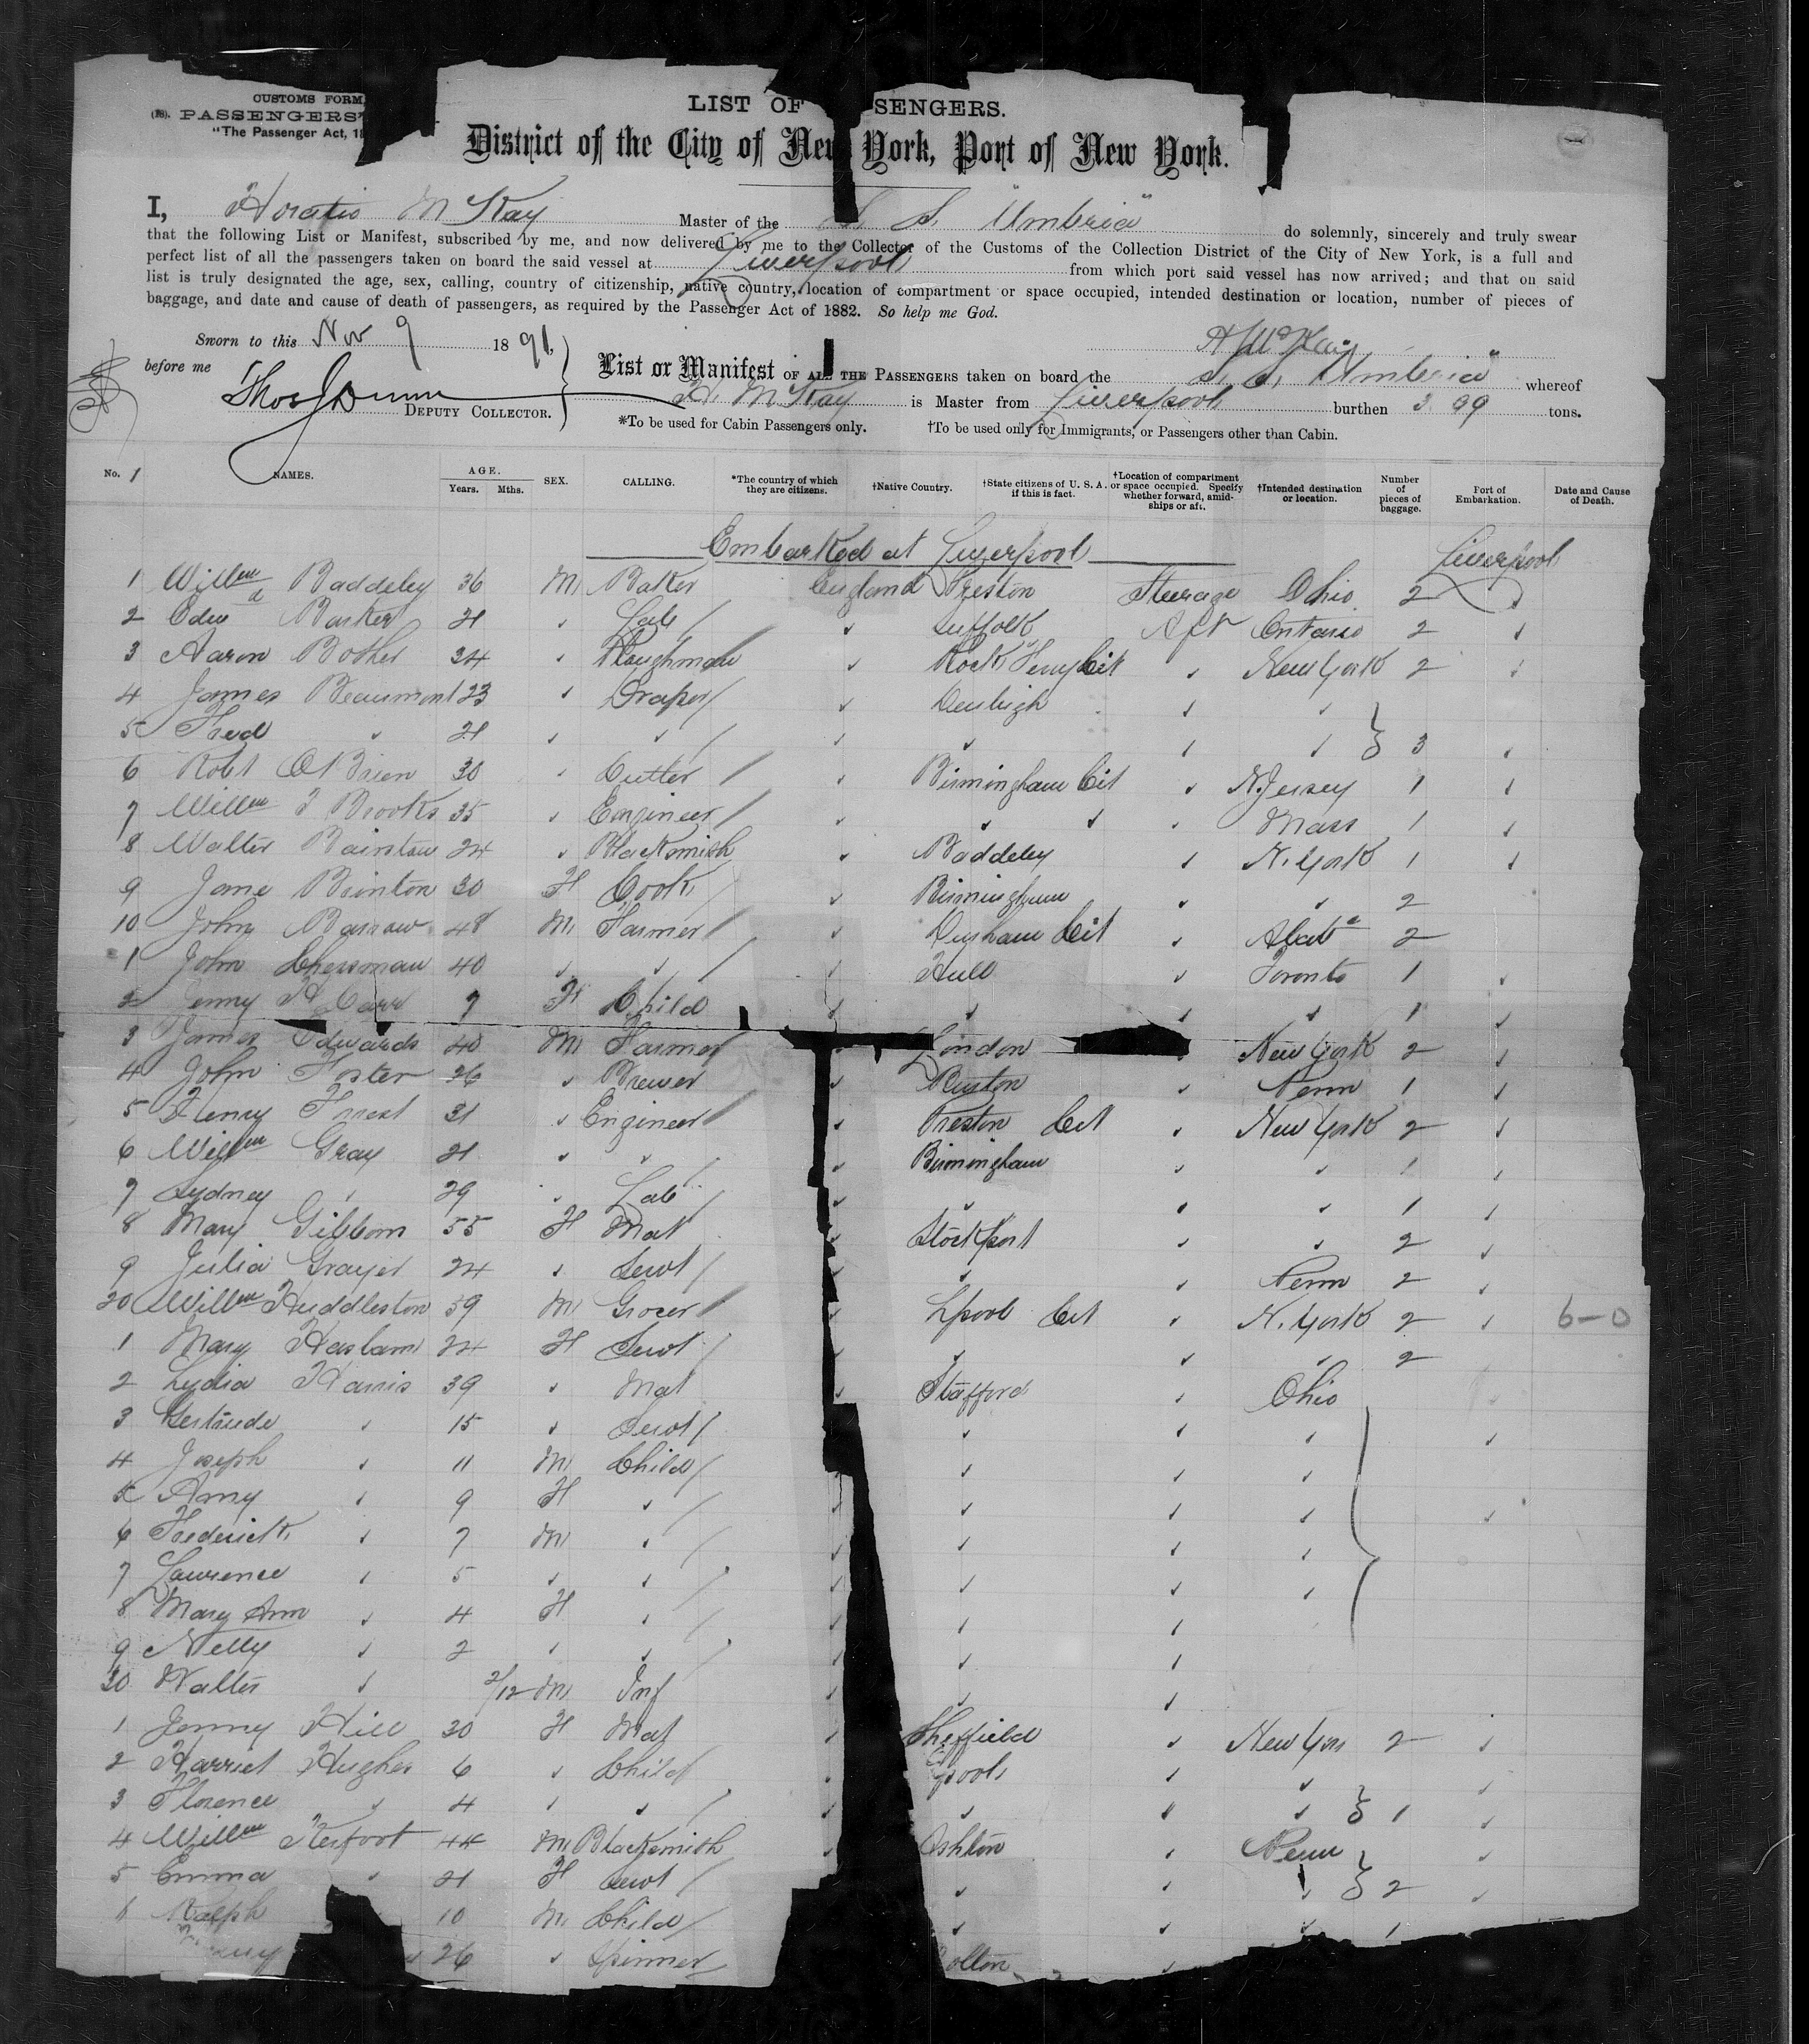 CUSTOMS FORM
LIST OF SENGERS.
(18). PASSENGERS'
"The Passenger Act, 18
District of the City of New York, Port of New York.
I, Horatio McKay Master of the S. S. "Umbria" do solemnly, sincerely and truly swear
that the following List or Manifest, subscribed by me, and now delivered by me to the Collector of the Customs of the Collection District of the City of New York, is a full and
perfect list of all the passengers taken on board the said vessel at Liverpool from which port said vessel has now arrived; and that on said
list is truly designated the age, sex, calling, country of citizenship, native country, location of compartment or space occupied, intended destination or location, number of pieces of
baggage, and date and cause of death of passengers, as required by the Passenger Act of 1882. So help me God.
Sworn to this Nov 9 1891
H McKay
before me List or Manifest OF ALL THE PASSENGERS taken on board the S. S. Umbria" whereof
Thos J Dunn DEPUTY COLLECTOR. H. McKay is Master from Liverpool burthen tons.
*To be used for Cabin Passengers only. †To be used only for Immigrants, or Passengers other than Cabin.
No. 1 NAMES. AGE. Years. Mths. SEX. CALLING. *The country of which they are citizens. †Native Country. †State citizens of U. S. A. if this is fact. †Location of compartment or space occupied. Specify whether forward, amidships or aft. †Intended destination or location. Number of pieces of baggage. Port of Embarkation. Date and Cause of Death.
Embarked at Liverpool Liverpool
1 Willm Baddeley 36 M Baker England Preston Steerage Ohio 2
2 Edwd Barker 21 " Lab " Suffolk Aft Ontario 2 "
3 Aaron Bother 34 " Ploughman " Rock Ferry Cit " New York 2 "
4 James Beaumont 23 " Draper " " "
5 Fred " 21 " " " " " " 3 "
6 Robt O'Brien 30 " Cutler " Birmingham Cit " N. Jersey 1 "
7 Willm J Brooks 35 " Engineer " " " " Mass 1 "
8 Walter Bairstow 24 " Blacksmith " Baddeley " N. York 1 "
9 Jane Brinton 30 F Cook " Birmingham " " 2
10 John Barrow 48 M Farmer " Durham Cit " 2
1 John Cheesman 40 " " " Hull " Toronto 1 "
2 Jenny H Carr 7 F Child " " " " 1 "
3 James Edwards 40 M Farmer " London " New York 2 "
4 John Foster 26 " Brewer " " Penn 1 "
5 Henry Forrest 31 " Engineer " Preston Cit " New York 2 "
6 Willm Gray 21 " " " Birmingham " " 1 "
7 Sydney " 29 " Lab " " " " 1 "
8 Mary Gibbons 55 F Mat " Stockport " " 2 "
9 Julia Grayer 24 " Servt " " " Penn 2 "
20 Willm Huddleston 59 M Grocer " Lpool Cit " N. York 2 " 6-0
1 Mary Haslam 24 F Servt " " " " 2
2 Lydia Harris 39 " Mat " Stafford " Ohio
3 Gertrude " 15 " Servt " " " "
4 Joseph " 11 M Child " " " "
5 Amy " 9 F " " " " "
6 Frederick " 7 M " " " " "
7 Lawrence " 5 " " " " " "
8 Mary Ann " 4 F " " " "
9 Nelly " 2 " " " " "
30 Walter " 2/12 M Inf " " "
1 Jenny Hill 30 F Mat " Sheffield " New York 2 "
2 Harriet Hughes 6 " Child " Lpool " " "
3 Florence " 4 " " " " " " 1 "
4 Willm Kerfoot 44 M Blacksmith " Ashton " Penn "
5 Emma " 21 F Servt " " " 2 "
6 Ralph 10 M Child " " " 1
26 " Spinner olton "